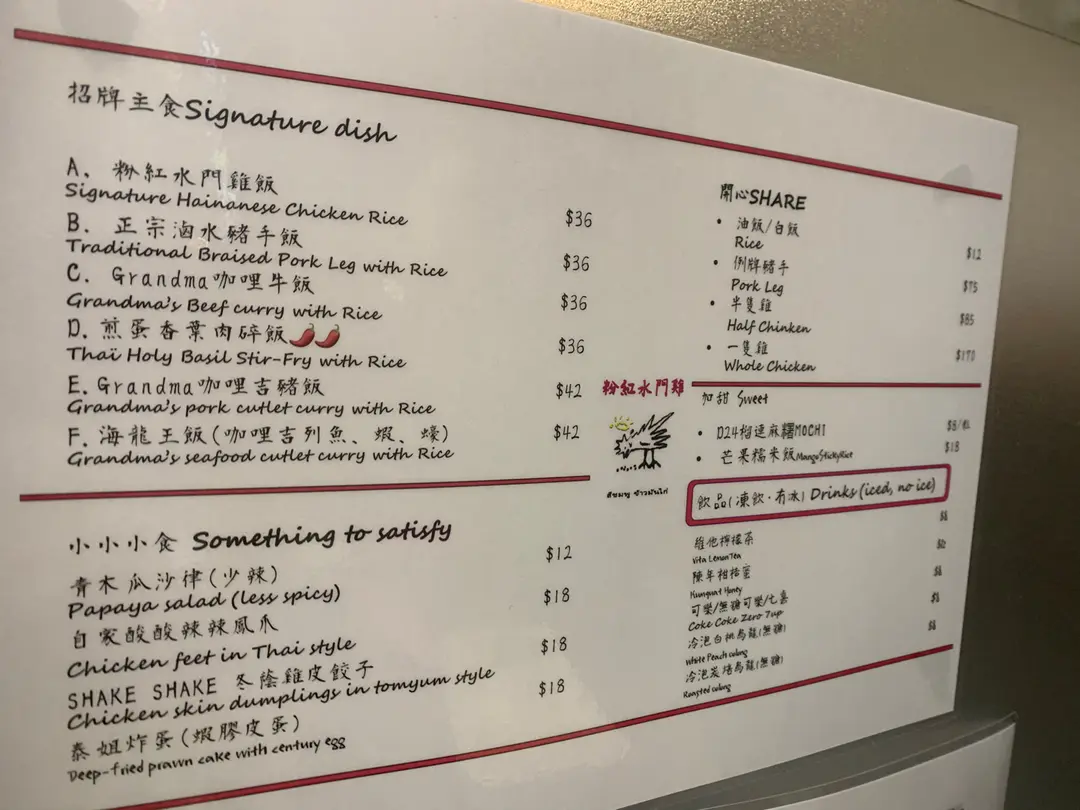 招牌主食Signature dish
A. 粉紅水門雞飯
Signature Hainanese Chicken Rice $36
B. 正宗滷水豬手飯
Traditional Braised Pork Leg with Rice $36
C. Grandma咖哩牛飯
Grandma's Beef curry with Rice $36
D. 煎蛋香葉肉碎飯🌶🌶
Thaï Holy Basil Stir-Fry with Rice $36
E. Grandma咖哩吉豬飯 $42
Grandma's pork cutlet curry with Rice
F. 海龍王飯(咖哩吉列魚、蝦、蠔) $42
Grandma's seafood cutlet curry with Rice
小小小食 Something to satisfy
青木瓜沙律(少辣) $12
Papaya salad (less spicy)
自家酸酸辣辣鳳爪 $18
Chicken feet in Thai style
SHAKE SHAKE 冬蔭雞皮餃子 $18
Chicken skin dumplings in tomyum style
泰姐炸蛋(蝦膠皮蛋) $18
Deep-fried prawn cake with century egg
開心SHARE
• 油飯/白飯
Rice $12
• 例牌豬手
Pork Leg $75
• 半隻雞
Half Chinken $85
• 一隻雞
Whole Chicken $170
粉紅水門雞
สีชมพู ข้าวมันไก่
加甜 Sweet
• D24榴槤麻糬MOCHI $8/粒
• 芒果糯米飯MangoStickyRice $18
飲品(凍飲·有冰) Drinks (iced, no ice)
維他檸檬茶
Vita Lemon Tea
陳年柑桔蜜
Kumquat Honey
可樂/無糖可樂/七喜
Coke Coke Zero 7up
冷泡白桃烏龍(無糖)
White Peach oolong
冷泡炭焙烏龍(無糖)
Roasted oolong